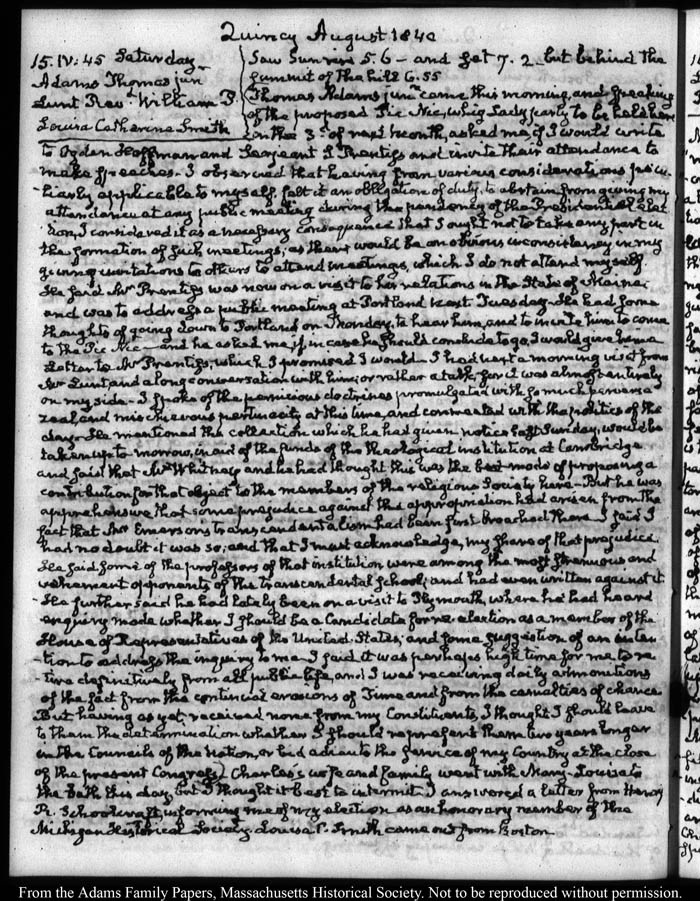 Quincy August 1840
15. IV: 45 Saturday
Adams Thomas jun
Lunt Revd. William P.
Louisa Catherine Smith
Saw Sun rise 5. 6 — and set 7. 2 but behind the
summit of the hill 6. 55
Thomas Adams junr. came this morning, and speaking
of the proposed Pic Nic, whig Lady party to be held here
on the 3d. of next month, asked me, if I would write
to Ogden Hoffman and Sergeant S Prentiss and invite their attendance to
make speeches. I observed that having from various considerations pecu-
liarly applicable to myself felt it an obligation of duty, to abstain from giving my
attendance at any public meeting during the pendency of the Presidential elec-
tion, I considered it as a necessary consequence that I ought not to take any part in
the formation of such meetings; as there would be an obvious inconsistency in my
giving invitations to others to attend meetings, which I do not attend myself.
He said Mr Prentiss was now on a visit to his relations in the State of Maine;
and was to address a public meeting at Portland next Tuesday. He had some
thoughts of going down to Portland on Monday, to hear him, and to invite him to come
to the Pic Nic — and he asked me, if in case he should conclude to go, I would give him a
Letter to Mr Prentiss, which I promised I would. I had next a morning visit from
Mr Lunt, and a long conversation with him; or rather a talk, for it was almost entirely
on my side. I spoke of the pernicious doctrines promulgated with so much perverse
zeal, and mischievous pertinacity at this time, and connected with the politics of the
day. He mentioned the collection which he had given notice last Sunday, would be
taken up to morrow, in aid of the funds of the theological institution at Cambridge
and said that Mr Whitney and he had thought this was the best mode of proposing a
contribution for that object to the members of the religious Society here. But he was
apprehensive that some prejudice against this appropriation had arisen from the
fact that Mr Emerson's transcendentalism had been first broached there. I said I
had no doubt it was so, and that I must acknowledge, my share of that prejudice.
He said some of the professors of that institution were among the most strenuous and
vehement opponents of the transcendental school; and had even written against it.
He further said he had lately been on a visit to Plymouth, where he had heard
enquiry made whether I should be a Candidate for re-election as a member of the
House of Representatives of the United States; and some suggestion of an inten-
tion to address the inquiry to me. I said it was perhaps high time for me to re-
tire definitively from all public life, and I was receiving daily admonitions
of the fact from the continual erosions of Time and from the casualties of chance
But having as yet, received none from my Constituents, I thought I should leave
to them the determination whether I should represent them two years longer
in the Councils of the Nation, or bid adieu to the service of my Country at the close
of the present Congress. Charles's wife and family went with Mary-Louisa to
the bath this day, but I thought it best to intermit. I answered a letter from Henry
R. Schoolcraft, informing me of my election as an honorary member of the
Michigan Historical Society. Louisa C. Smith came out from Boston.
From the Adams Family Papers, Massachusetts Historical Society. Not to be reproduced without permission.